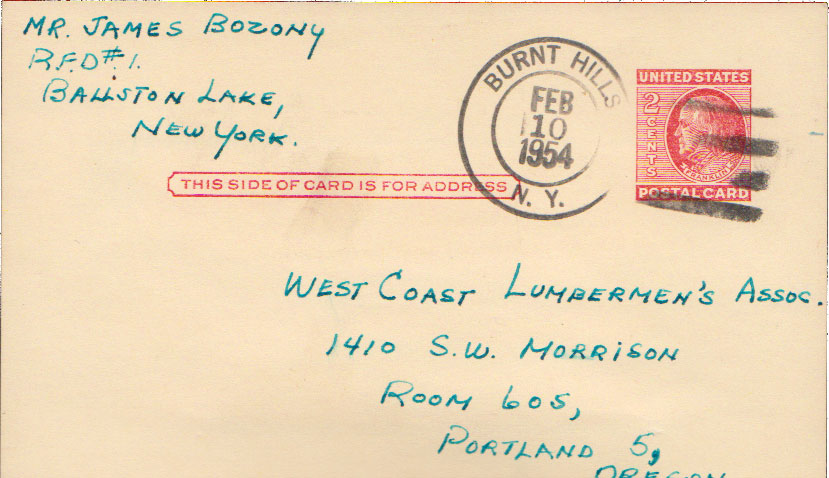 MR. JAMES BOZONY
R.F.D #1.
BALLSTON LAKE,
NEW YORK.
BURNT HILLS
FEB
10
1954
N. Y.
UNITED STATES
2 CENTS
FRANKLIN
POSTAL CARD
THIS SIDE OF CARD IS FOR ADDRESS
WEST COAST LUMBERMEN'S ASSOC.
1410 S.W. MORRISON
ROOM 605,
PORTLAND 5,
OREGON